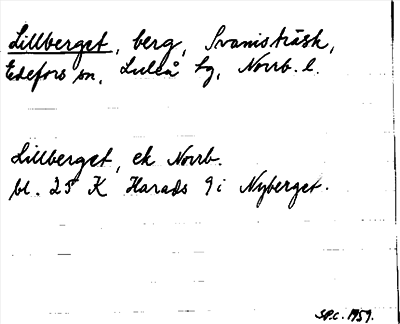 Lillberget, berg, Svanisträsk,
Edefors sn, Luleå tg, Norrb. l.
Lillberget, ek Norrb.
bl. 25 K Harads 9i Nyberget.
SPC. 1959.